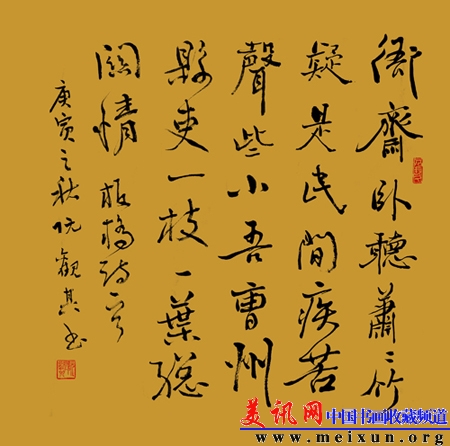 衙齋臥聽蕭〻竹
疑是民間疾苦
聲些小吾曹州
縣吏一枝一葉總
關情 板橋詩一首
庚寅之秋 阮觀其书
美讯网 中国书画收藏频道
www.meixun.org